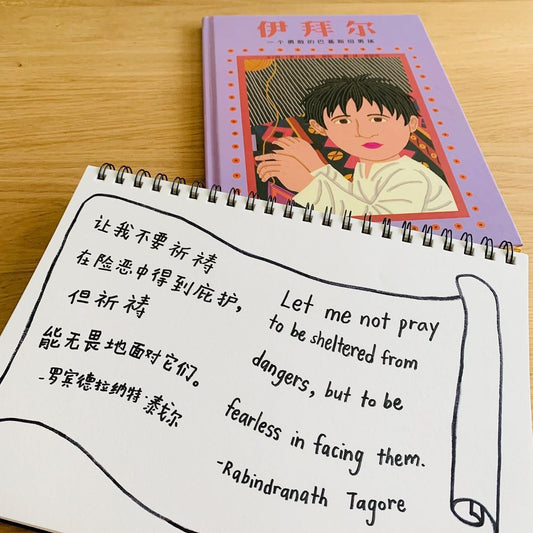 伊拜尔
一个勇敢的巴基斯坦男孩
让我不要祈祷
在险恶中得到庇护，
但祈祷
能无畏地面对它们。
-罗宾德拉纳特·泰戈尔
Let me not pray
to be sheltered from
dangers, but to be
fearless in facing them.
-Rabindranath Tagore